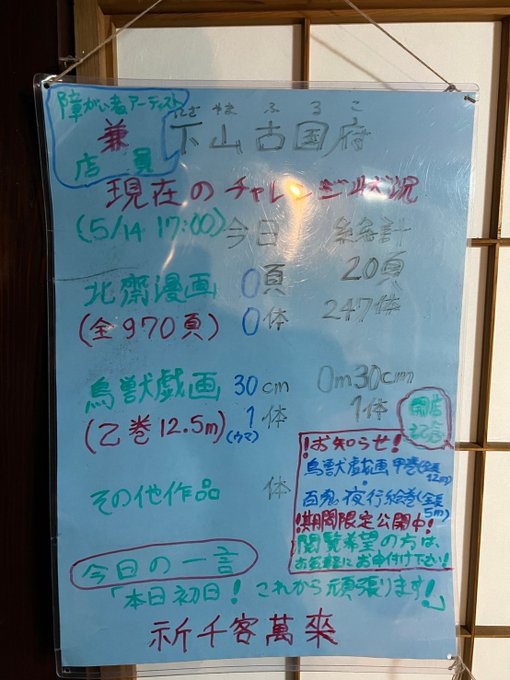 障がい者アーティスト
兼
店員
やま ふる こ
下山古国府
現在のチャレンジ状況
(5/14 17:00) 今日 総計
北齋漫画 0頁 20頁
(全970頁) 0体 247体
鳥獣戯画 30cm 0m30cm
(乙巻12.5m) 1体 1体
(ウマ)
その他作品 体
開店
記念
!お知らせ!
鳥獣戯画甲巻(全長12m)
・
百鬼夜行絵巻(全長5m)
!期間限定公開中!
閲覧希望の方は、
お気軽にお申付け下さい!
今日の一言
「本日初日!これから頑張ります!」
祈千客萬来